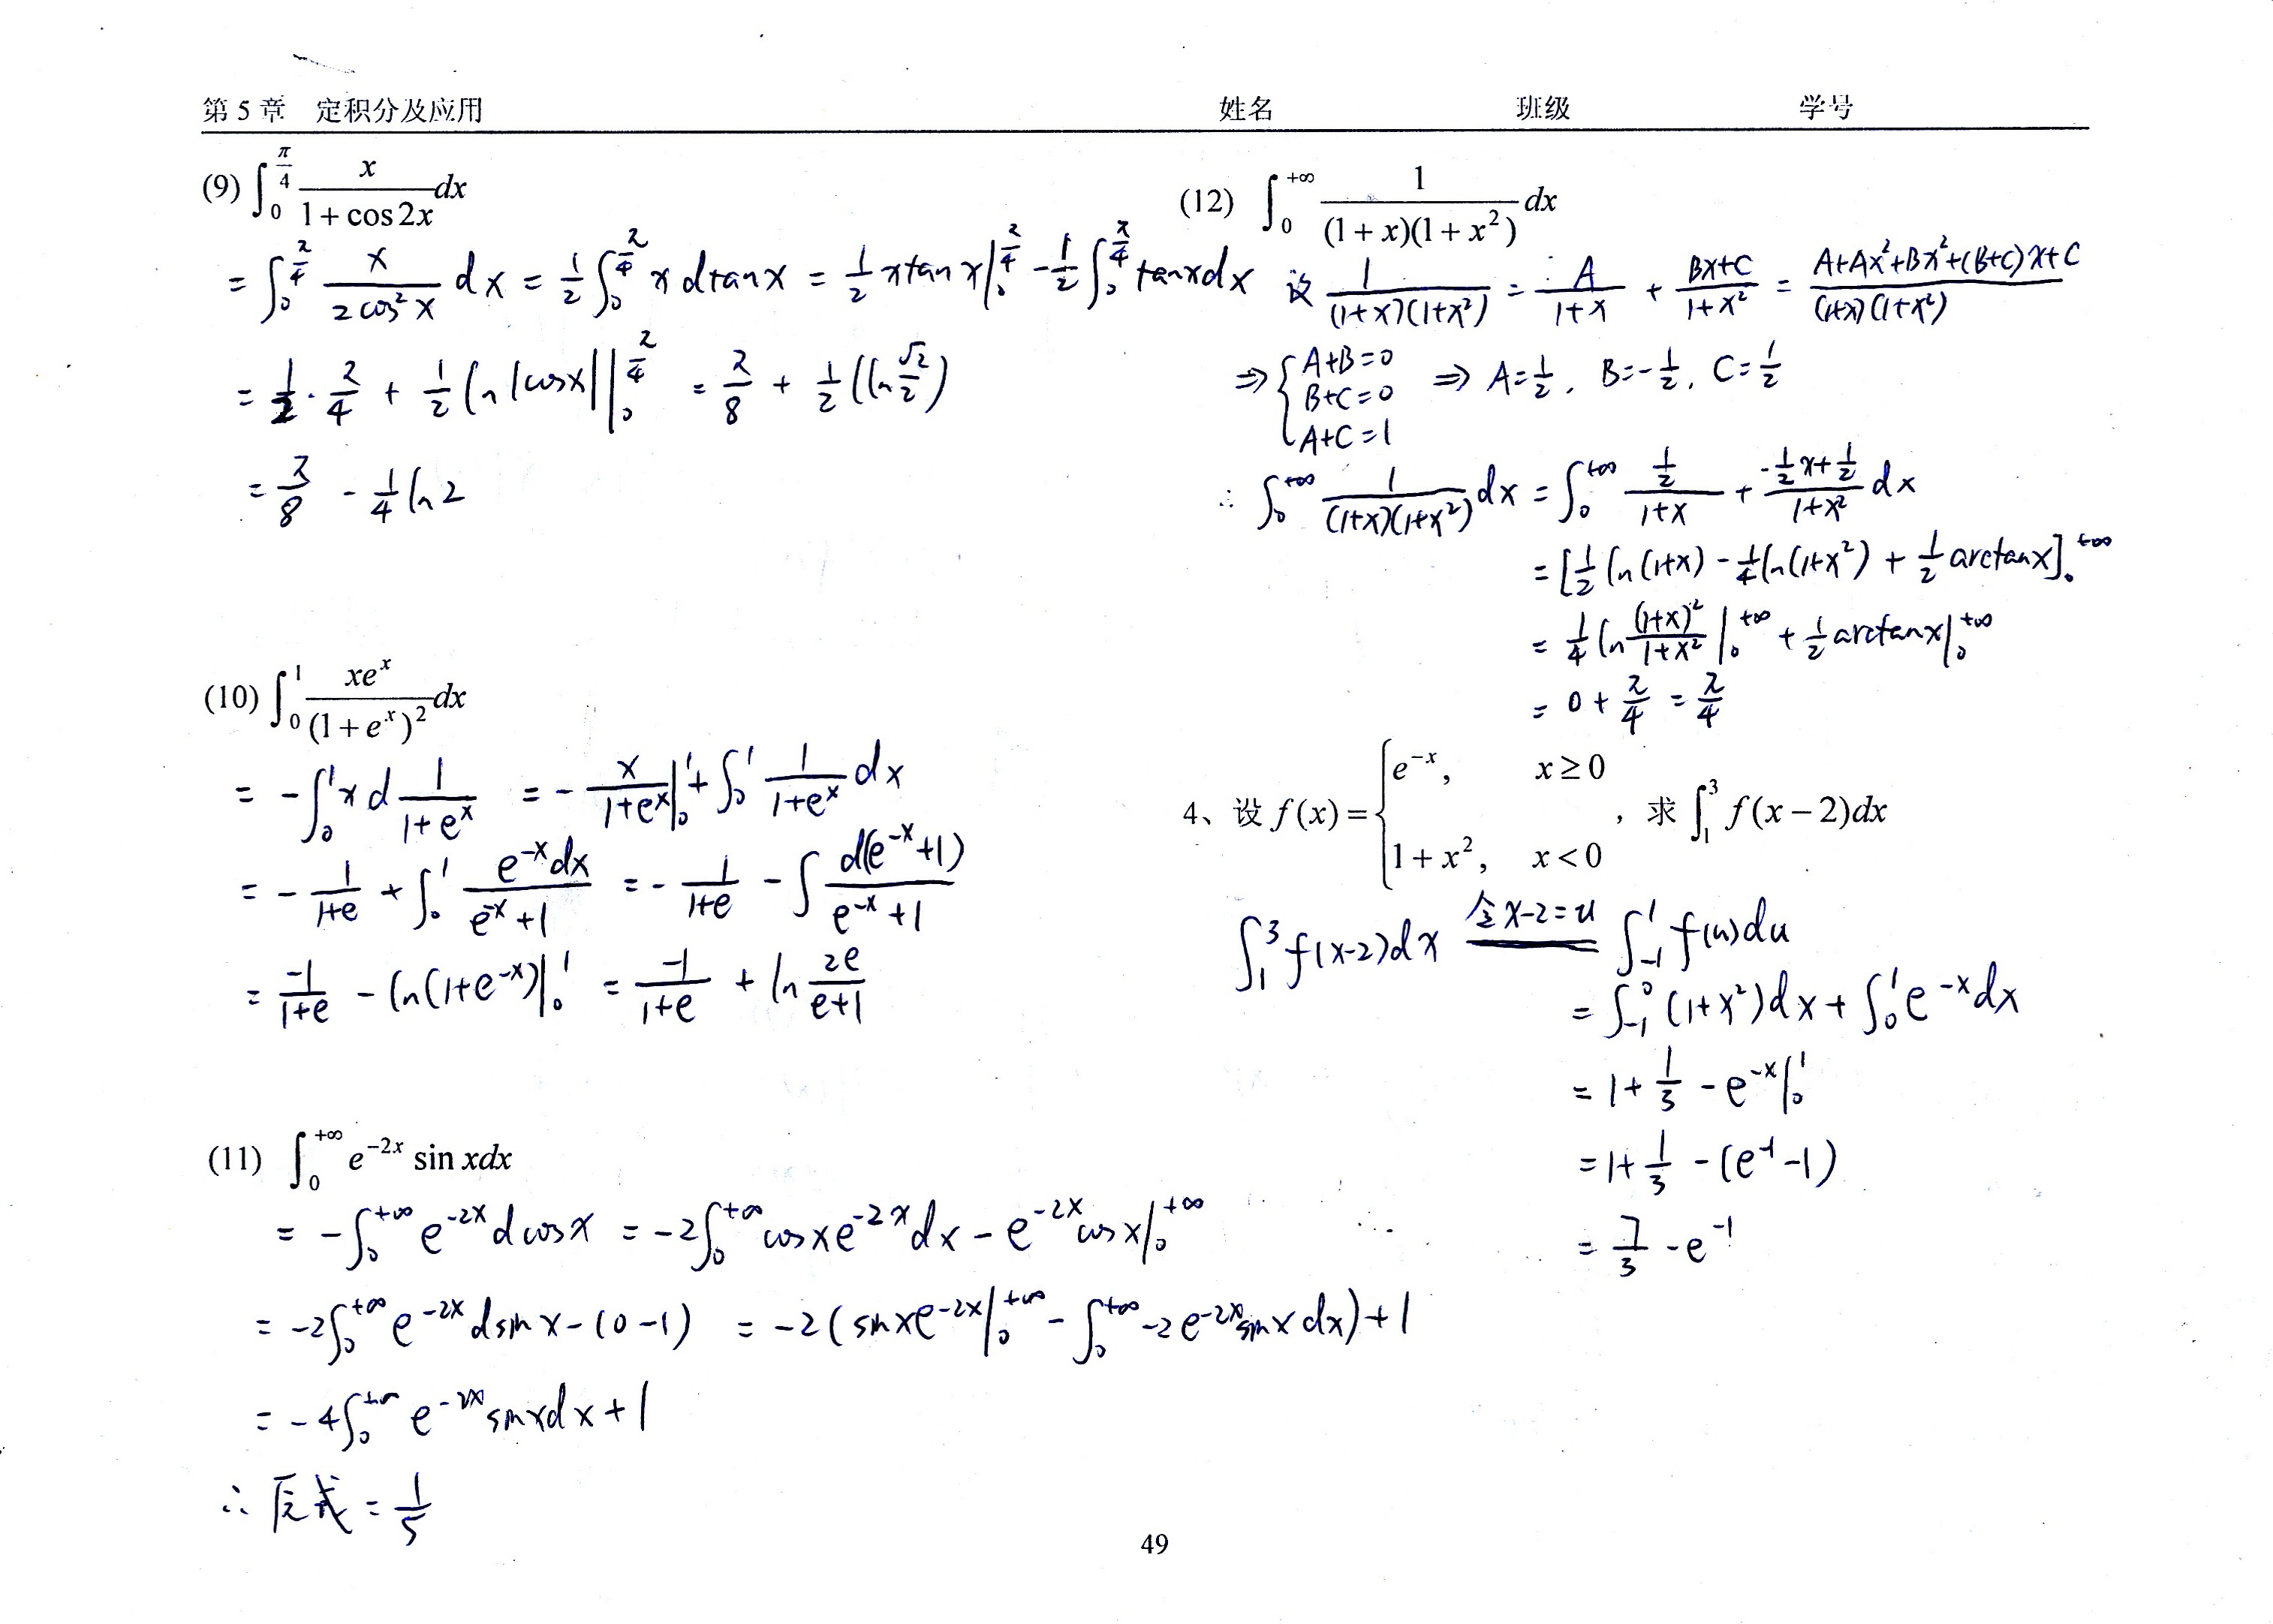 第 5 章 定积分及应用 姓名 班级 学号
(9) ∫_0^{π/4} x/(1+cos2x) dx
= ∫_0^{π/4} x/(2cos²x) dx = 1/2 ∫_0^{π/4} x dtanx = 1/2 xtanx|_0^{π/4} - 1/2 ∫_0^{π/4} tanxdx
= 1/2 · π/4 + 1/2 ln|cosx| |_0^{π/4} = π/8 + 1/2 (ln √2/2)
= π/8 - 1/4 ln2
(10) ∫_0^1 xe^x/(1+e^x)² dx
= -∫_0^1 x d 1/(1+e^x) = - x/(1+e^x)|_0^1 + ∫_0^1 1/(1+e^x) dx
= - 1/(1+e) + ∫_0^1 e^{-x}dx/(e^{-x}+1) = - 1/(1+e) - ∫ d(e^{-x}+1)/(e^{-x}+1)
= -1/(1+e) - ln(1+e^{-x})|_0^1 = -1/(1+e) + ln 2e/(e+1)
(11) ∫_0^{+∞} e^{-2x} sin xdx
= -∫_0^{+∞} e^{-2x} dcosx = -2∫_0^{+∞} cosxe^{-2x}dx - e^{-2x}cosx|_0^{+∞}
= -2∫_0^{+∞} e^{-2x} dsinx - (0-1) = -2(sinxe^{-2x}|_0^{+∞} - ∫_0^{+∞} -2e^{-2x}sinxdx)+1
= -4∫_0^{+∞} e^{-2x}sinxdx+1
∴ 原式 = 1/5
(12) ∫_0^{+∞} 1/((1+x)(1+x²)) dx
设 1/((1+x)(1+x²)) = A/(1+x) + (Bx+C)/(1+x²) = (A+Ax²+Bx²+(B+C)x+C)/((1+x)(1+x²))
⇒ { A+B=0
B+C=0
A+C=1 ⇒ A=1/2, B=-1/2, C=1/2
∴ ∫_0^{+∞} 1/((1+x)(1+x²)) dx = ∫_0^{+∞} (1/2)/(1+x) + (-1/2x+1/2)/(1+x²) dx
= [1/2 ln(1+x) - 1/4 ln(1+x²) + 1/2 arctanx]_0^{+∞}
= 1/4 ln (1+x)²/(1+x²)|_0^{+∞} + 1/2 arctanx|_0^{+∞}
= 0 + π/4 = π/4
4、设 f(x) = { e^{-x}, x≥0
1+x², x<0 ，求 ∫_1^3 f(x-2)dx
∫_1^3 f(x-2)dx 令x-2=u ∫_{-1}^1 f(u)du
= ∫_{-1}^0 (1+x²)dx + ∫_0^1 e^{-x}dx
= 1+ 1/3 - e^{-x}|_0^1
= 1+ 1/3 - (e^{-1}-1)
= 7/3 - e^{-1}
49